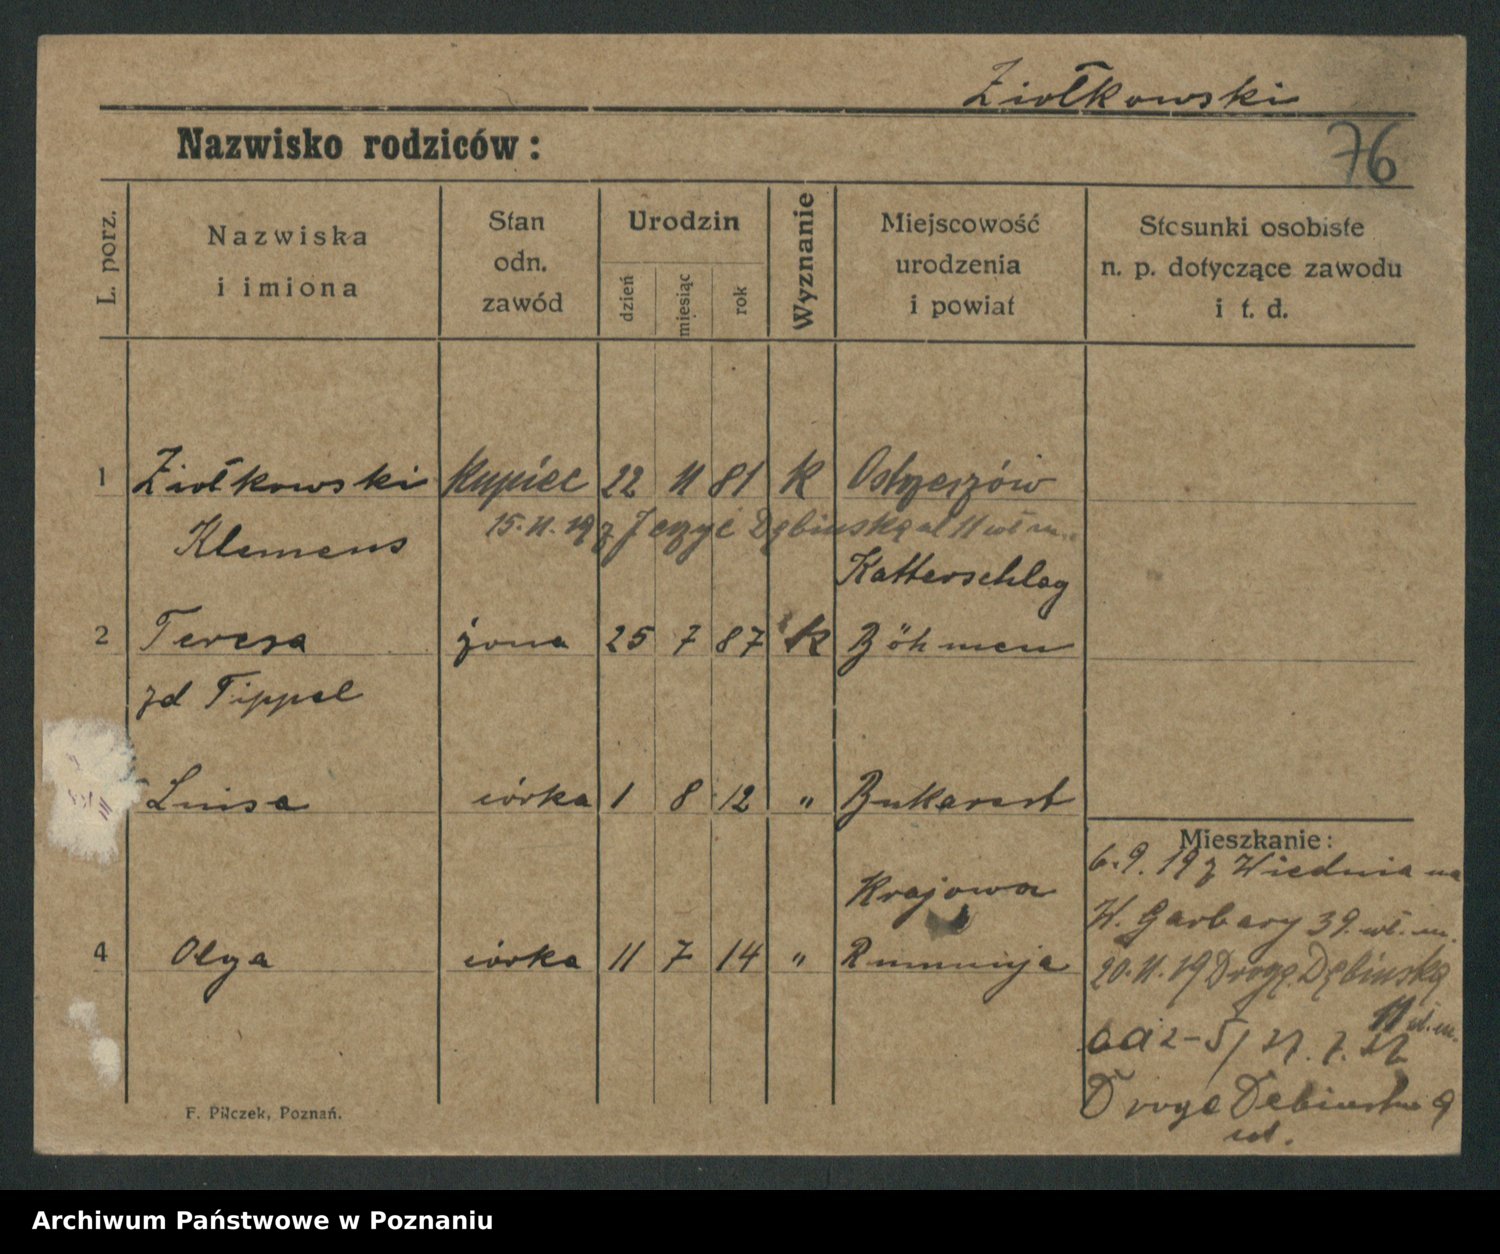 Ziołkowski
Nazwisko rodziców:
76
L. porz.
Nazwiska
i imiona
Stan
odn.
zawód
Urodzin
dzień
miesiąc
rok
Wyznanie
Miejscowość
urodzenia
i powiat
Stosunki osobiste
n. p. dotyczące zawodu
i t. d.
1 Ziołkowski kupiec 22 11 81 k Ostrzeszów
Klemens
15.11.19 z Jerzyc Dębińską 11
Katterschlag
2 Teresa żona 25 7 87 k Böhmen
zd Tippel
Luisa córka 1 8 12 " Bukarest
Krajowa
4 Olga córka 11 7 14 " Rumunja
Mieszkanie:
6.9.19 z Wiednia na
W. Garbary 39. wł. m.
20.11.19 Drogę Dębińską
11 wł. m.
Droga Dębińska 9
wł.
F. Pilczek, Poznań.
Archiwum Państwowe w Poznaniu